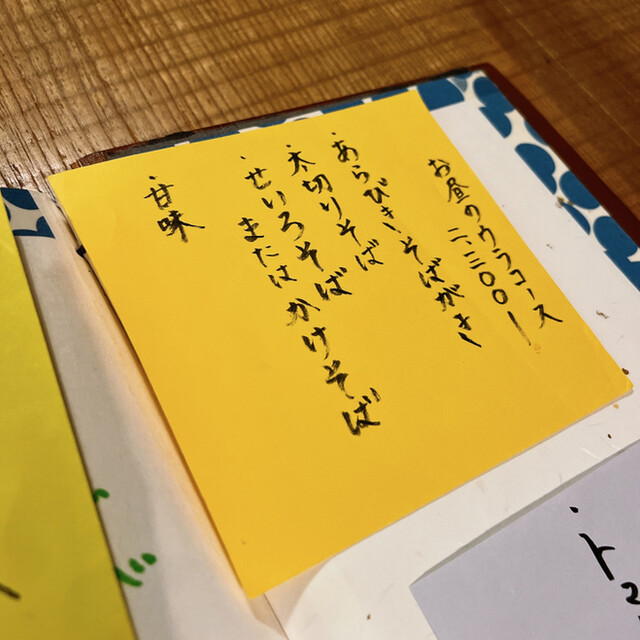 お昼のウラコース
二、二〇〇ー
・あらびきそばがき
・太切りそば
・せいろそば
または かけそば
・甘味